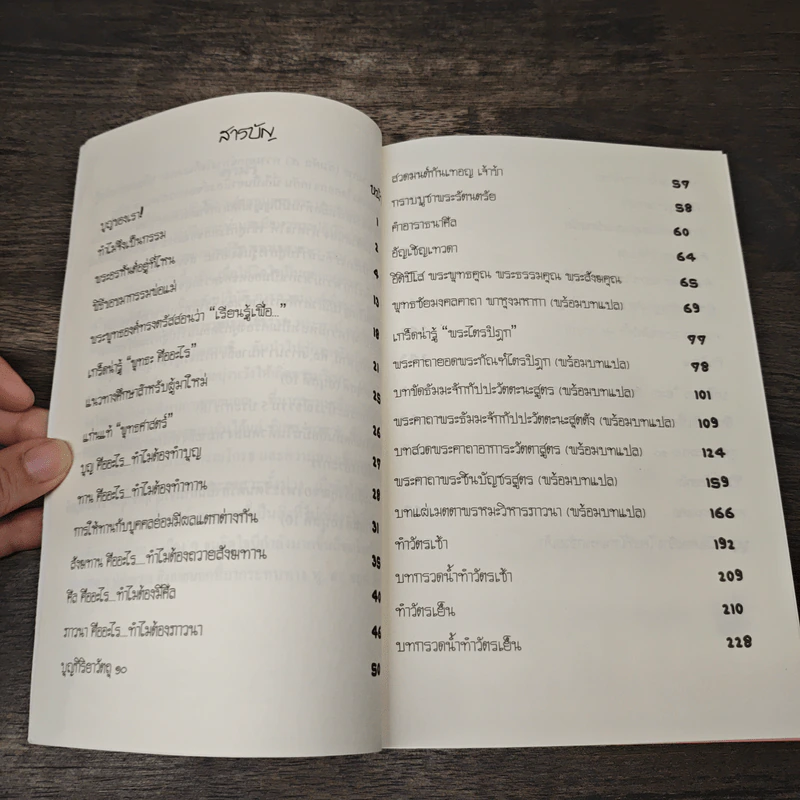 สารบัญ
หน้า
บุญของเรา! 1
ทำไมจึงเป็นกรรม 2
พระอรหันต์อยู่ที่ไหน 9
พิธีขอขมากรรมพ่อแม่ 13
พระพุทธองค์ทรงตรัสสอนว่า “เรียนรู้เพื่อ...” 18
เกร็ดน่ารู้ “พุทธะ คืออะไร” 21
แนวทางศึกษาสำหรับผู้มาใหม่ 25
แก่นแท้ “พุทธศาสตร์” 26
บุญ คืออะไร...ทำไมต้องทำบุญ 27
ทาน คืออะไร...ทำไมต้องทำทาน 28
การให้ทานกับบุคคลย่อมมีผลแตกต่างกัน 31
สังฆทาน คืออะไร...ทำไมต้องถวายสังฆทาน 35
ศีล คืออะไร...ทำไมต้องมีศีล 40
ภาวนา คืออะไร...ทำไมต้องภาวนา 46
บุญกิริยาวัตถุ ๑๐ 50
สวดมนต์กันเทอญ เจ้าข้า 57
กราบบูชาพระรัตนตรัย 58
คำอาราธนาศีล 60
อัญเชิญเทวดา 64
อิติปิโส พระพุทธคุณ พระธรรมคุณ พระสังฆคุณ 65
พุทธชัยมงคลคาถา พาหุงมหากา (พร้อมบทแปล) 69
เกร็ดน่ารู้ “พระไตรปิฎก” 77
พระคาถายอดพระกัณฑ์ไตรปิฎก (พร้อมบทแปล) 78
บทขัดธัมมะจักกัปปะวัตตะนะสูตร (พร้อมบทแปล) 101
พระคาถาพระธัมมะจักกัปปะวัตตะนะสุตตัง (พร้อมบทแปล) 109
บทสวดพระคาถาอาการะวัตตาสูตร (พร้อมบทแปล) 124
พระคาถาพระชินบัญชรสูตร (พร้อมบทแปล) 159
บทแผ่เมตตาพรหมะวิหารภาวนา (พร้อมบทแปล) 166
ทำวัตรเช้า 192
บทกรวดน้ำทำวัตรเช้า 209
ทำวัตรเย็น 210
บทกรวดน้ำทำวัตรเย็น 228